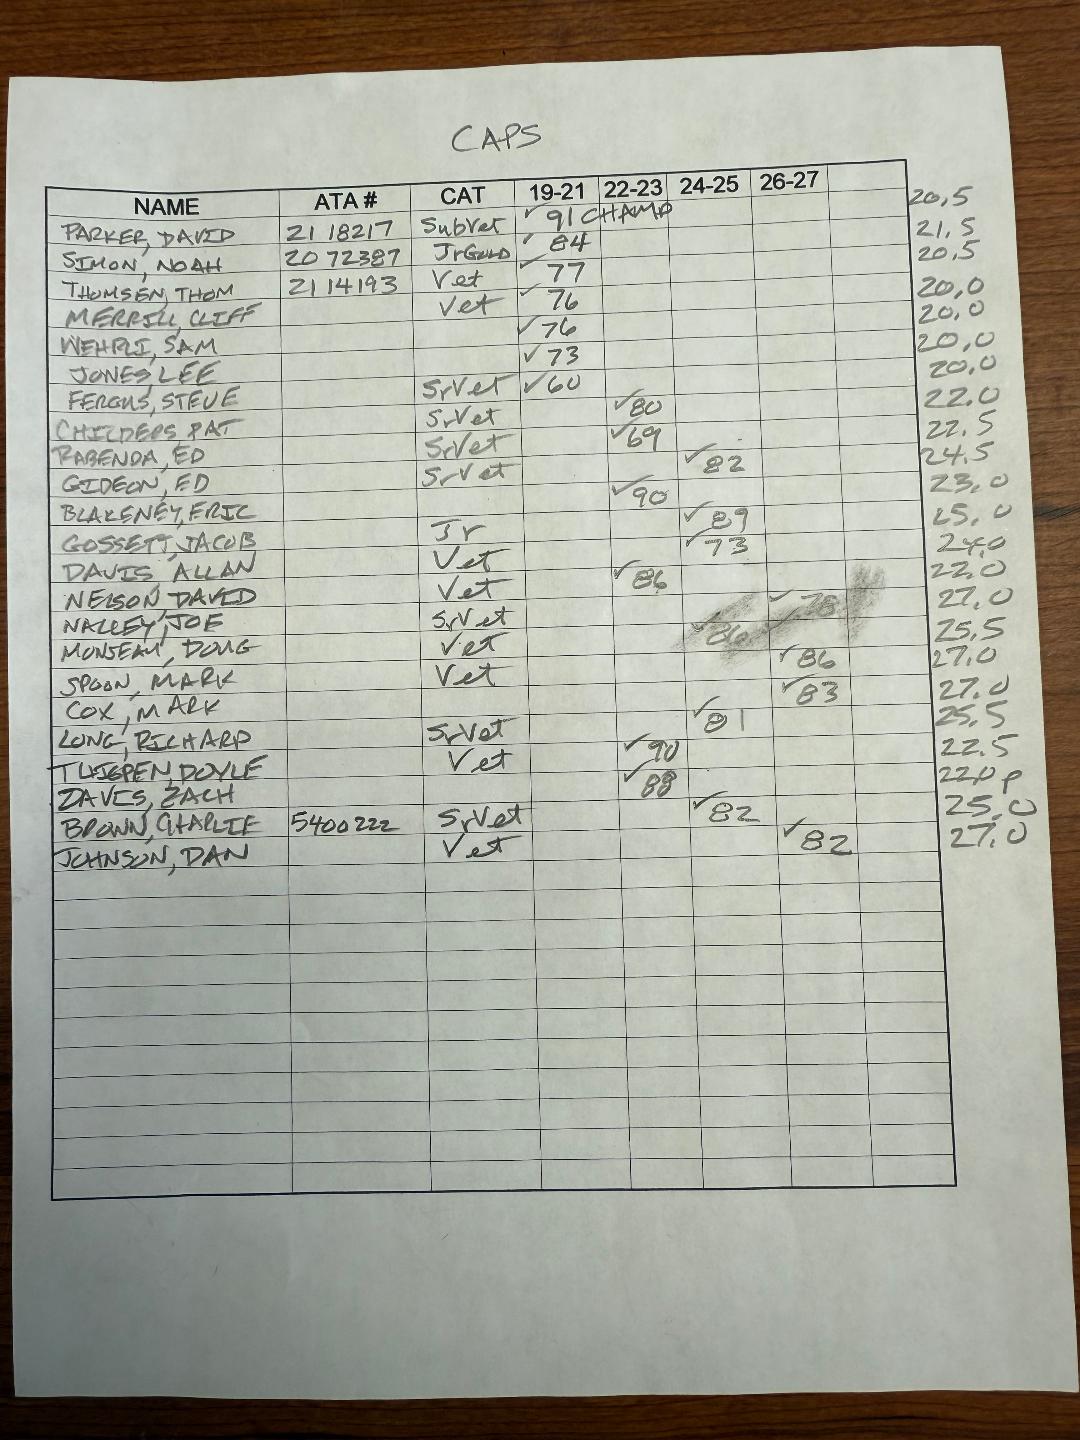 CAPS
NAME ATA # CAT 19-21 22-23 24-25 26-27
PARKER, DAVID 21 18217 SubVet ✓ 91 CHAMP 20,5
SIMON, NOAH 20 72387 JrGOLD ✓ 84 21,5
THOMSEN, THOM 21 14193 Vet ✓ 77 20,5
MERRILL, CLIFF Vet ✓ 76 20,0
WEHRLI, SAM ✓ 76 20,0
JONES, LEE ✓ 73 20,0
FERGUS, STEVE SrVet ✓ 60 20,0
CHILDERS, PAT SrVet ✓ 80 22.0
RABENDA, ED SrVet ✓ 69 22.5
GIDEON, ED SrVet ✓ 82 24.5
BLAKENEY, ERIC ✓ 90 23.0
GOSSETT, JACOB Jr ✓ 89 25.0
DAVIS, ALLAN Vet ✓ 73 24,0
NELSON, DAVID Vet ✓ 86 22,0
NALLEY, JOE SrVet ✓ 78 27,0
DOUG Vet ✓ 86 25,5
SPOON, MARK Vet ✓ 86 27.0
COX, MARK ✓ 83 27,0
LONG, RICHARD SrVet ✓ 81 25,5
THIGPEN, DOYLE Vet ✓ 90 22.5
DAVIS, ZACH ✓ 88 22,0 P
BROWN, CHARLIE 5400222 SrVet ✓ 82 25.0
JOHNSON, DAN Vet ✓ 82 27.0